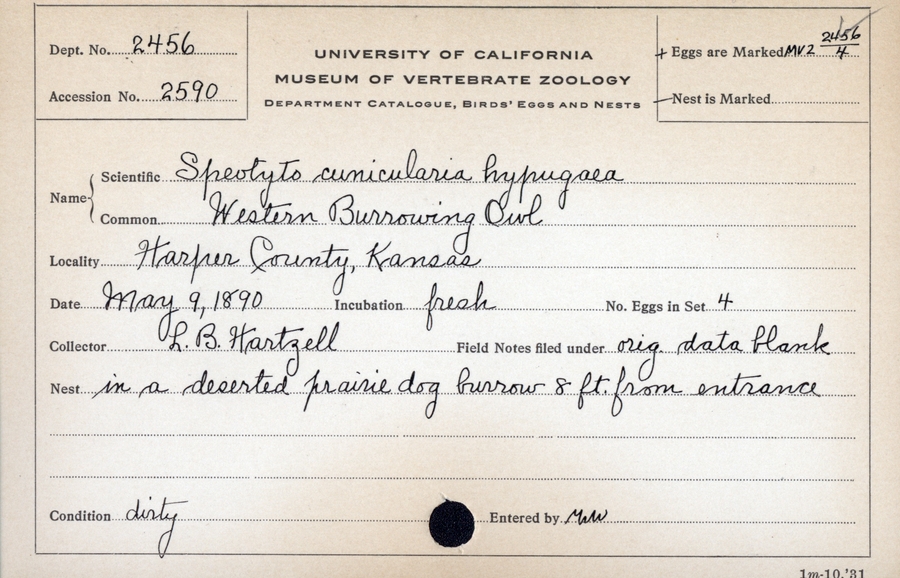 Dept. No. 2456
Accession No. 2590
UNIVERSITY OF CALIFORNIA
MUSEUM OF VERTEBRATE ZOOLOGY
DEPARTMENT CATALOGUE, BIRDS' EGGS AND NESTS
+ Eggs are Marked MVZ 2456/4
Nest is Marked
Name Scientific Speotyto cunicularia hypugaea
Common Western Burrowing Owl
Locality Harper County, Kansas
Date May 9, 1890 Incubation fresh No. Eggs in Set 4
Collector L. B. Hartzell Field Notes filed under orig. data blank
Nest in a deserted prairie dog burrow 8 ft. from entrance
Condition dirty Entered by
1m-10,'31